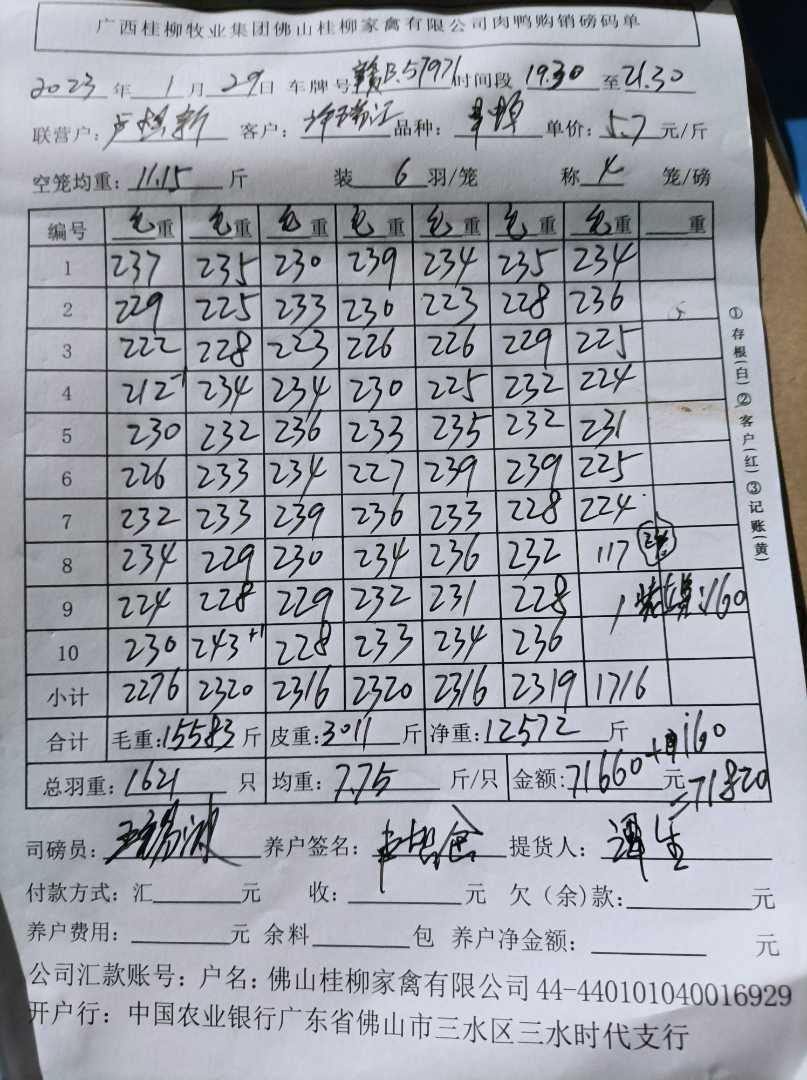 广西桂柳牧业集团佛山桂柳家禽有限公司肉鸭购销磅码单
2023 年 1 月 29 日 车牌号 赣B.57971 时间段 19.30 至 21.30
联营户: 客户: 品种: 单价: 5.7 元/斤
空笼均重: 11.15 斤 装 6 羽/笼 称 4 笼/磅
编号 毛重 毛重 毛重 毛重 毛重 毛重 毛重 重
1 237 235 230 239 234 235 234
2 229 225 233 230 223 228 236
3 222 228 223 226 226 229 225
4 212⁻¹ 234 234 230 225 232 224
5 230 232 236 233 235 232 231
6 226 233 234 227 239 239 225
7 232 233 239 236 233 228 224
8 234 229 230 234 236 232 117
9 224 228 229 232 231 228 160
10 230 243⁺¹ 228 233 234 236
小计 2276 2320 2316 2320 2316 2319 1716
合计 毛重: 15583 斤 皮重: 3011 斤 净重: 12572 斤
总羽重: 1621 只 均重: 7.75 斤/只 金额: 71660 元 +160 =71820
司磅员: 养户签名: 提货人:
付款方式: 汇 元 收: 元 欠(余)款: 元
养户费用: 元 余料 包 养户净金额: 元
公司汇款账号: 户名: 佛山桂柳家禽有限公司 44-440101040016929
开户行: 中国农业银行广东省佛山市三水区三水时代支行
①存根(白)②客户(红)③记账(黄)